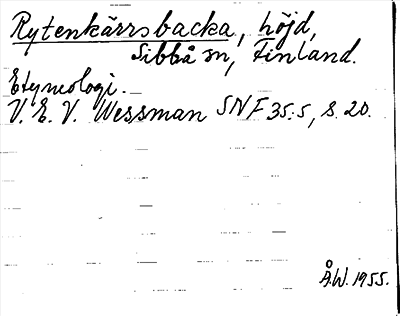 Rytenkärrsbacka, höjd,
Sibbå sn, Finland.
Etymologi.
V. E. V. Wessman SNF 35:5, s. 20.
Å.W. 1955.